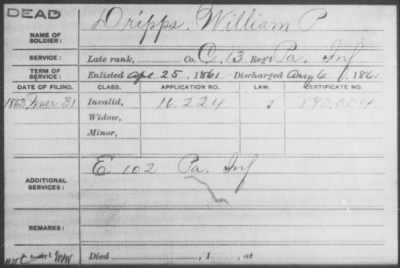 DEAD
NAME OF SOLDIER: Dripps, William P
SERVICE: Late rank, Co. C, 13 Reg't Pa. Inf
TERM OF SERVICE: Enlisted Apr 25, 1861 Discharged Aug 6, 1861
DATE OF FILING. CLASS. APPLICATION NO. LAW. CERTIFICATE NO.
1863 Mar 31 Invalid, 16.224 890.004
Widow,
Minor,
ADDITIONAL SERVICES: E 102 Pa. Inf
REMARKS:
Died , 1 , at